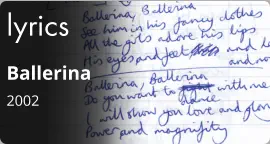 lyrics
Ballerina
2002
Ballerina, Ballerina
See him in his fancy clothes
All the girls adore his lips
His eyes and feet and
and no
Ballerina, Ballerina
Do you want to dance with me
I will show you love and glory
Power and magnifity